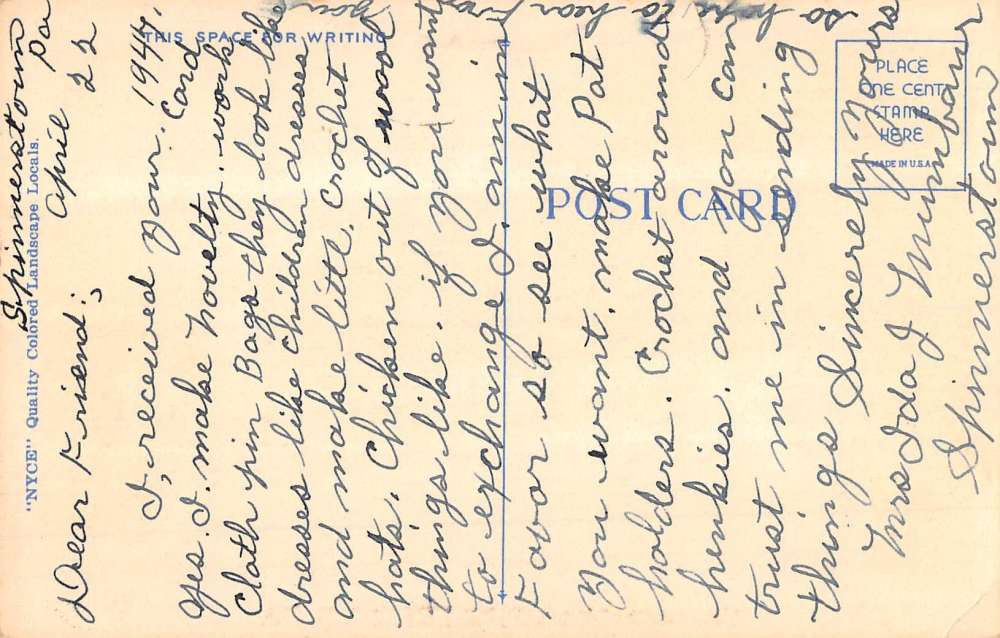 Spinnerstown Pa
April 22
1944,
Dear Friend:
I, received your. Card
Yes. I. make novelty. work
Cloth pin Bags they look like
dresses like children dresses
and make little. Crochet
hats. Chicken out of wool
things like. if you want
to exchange I. am in
Favor so to see what
You want. make Pot
holders. Crochet around
henkies. and you can
trust me in sending
things Sincerely Yours
Mrs Ida J Mumbauer
Spinnerstown
so hope to hear from
you
THIS SPACE FOR WRITING
POST CARD
PLACE
ONE CENT
STAMP
HERE
MADE IN U.S.A.
"NYCE" Quality Colored Landscape Locals.